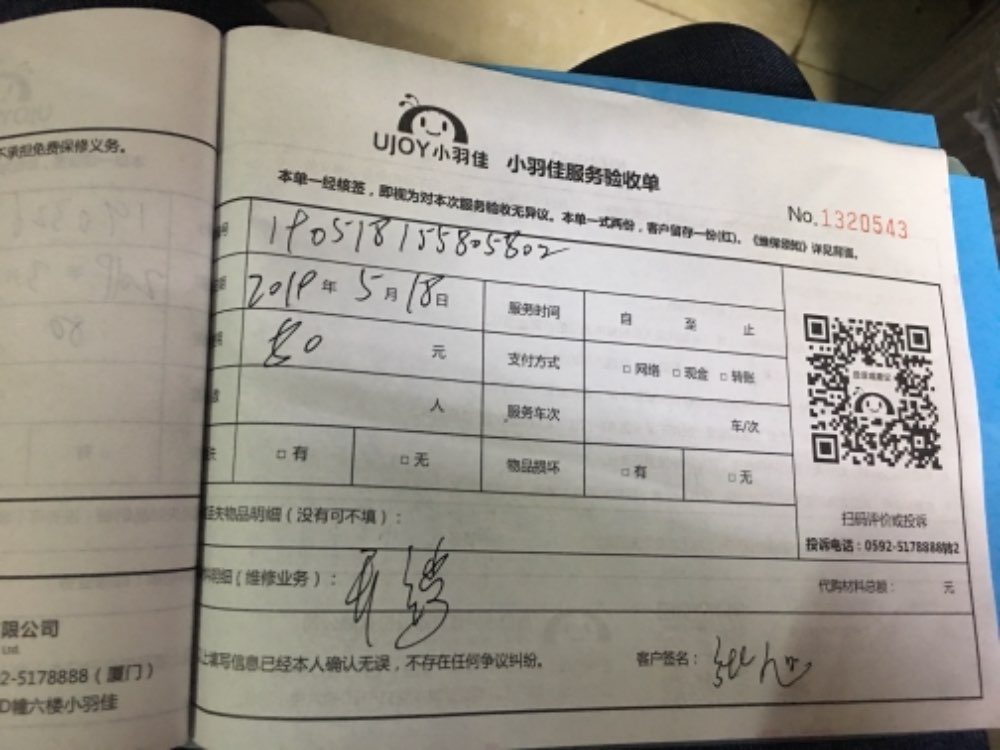 不承担免费保修义务。
UJOY小羽佳 小羽佳服务验收单
本单一经核签，即视为对本次服务验收无异议。本单一式两份，客户留存一份(红)。《维保须知》详见背面。
No.1320543
号 190518155805802
2019年5月18日 服务时间 自 至 止
元 支付方式 □网络 □现金 □转账
人 服务车次 车/次
失 □有 □无 物品损坏 □有 □无
扫码评价或投诉
投诉电话：0592-5178888转2
失物品明细（没有可不填）：
明细（维修业务）： 开锁
代购材料总额： 元
上填写信息已经本人确认无误，不存在任何争议纠纷。
客户签名：
限公司
Ltd.
2-5178888（厦门）
D幢六楼小羽佳